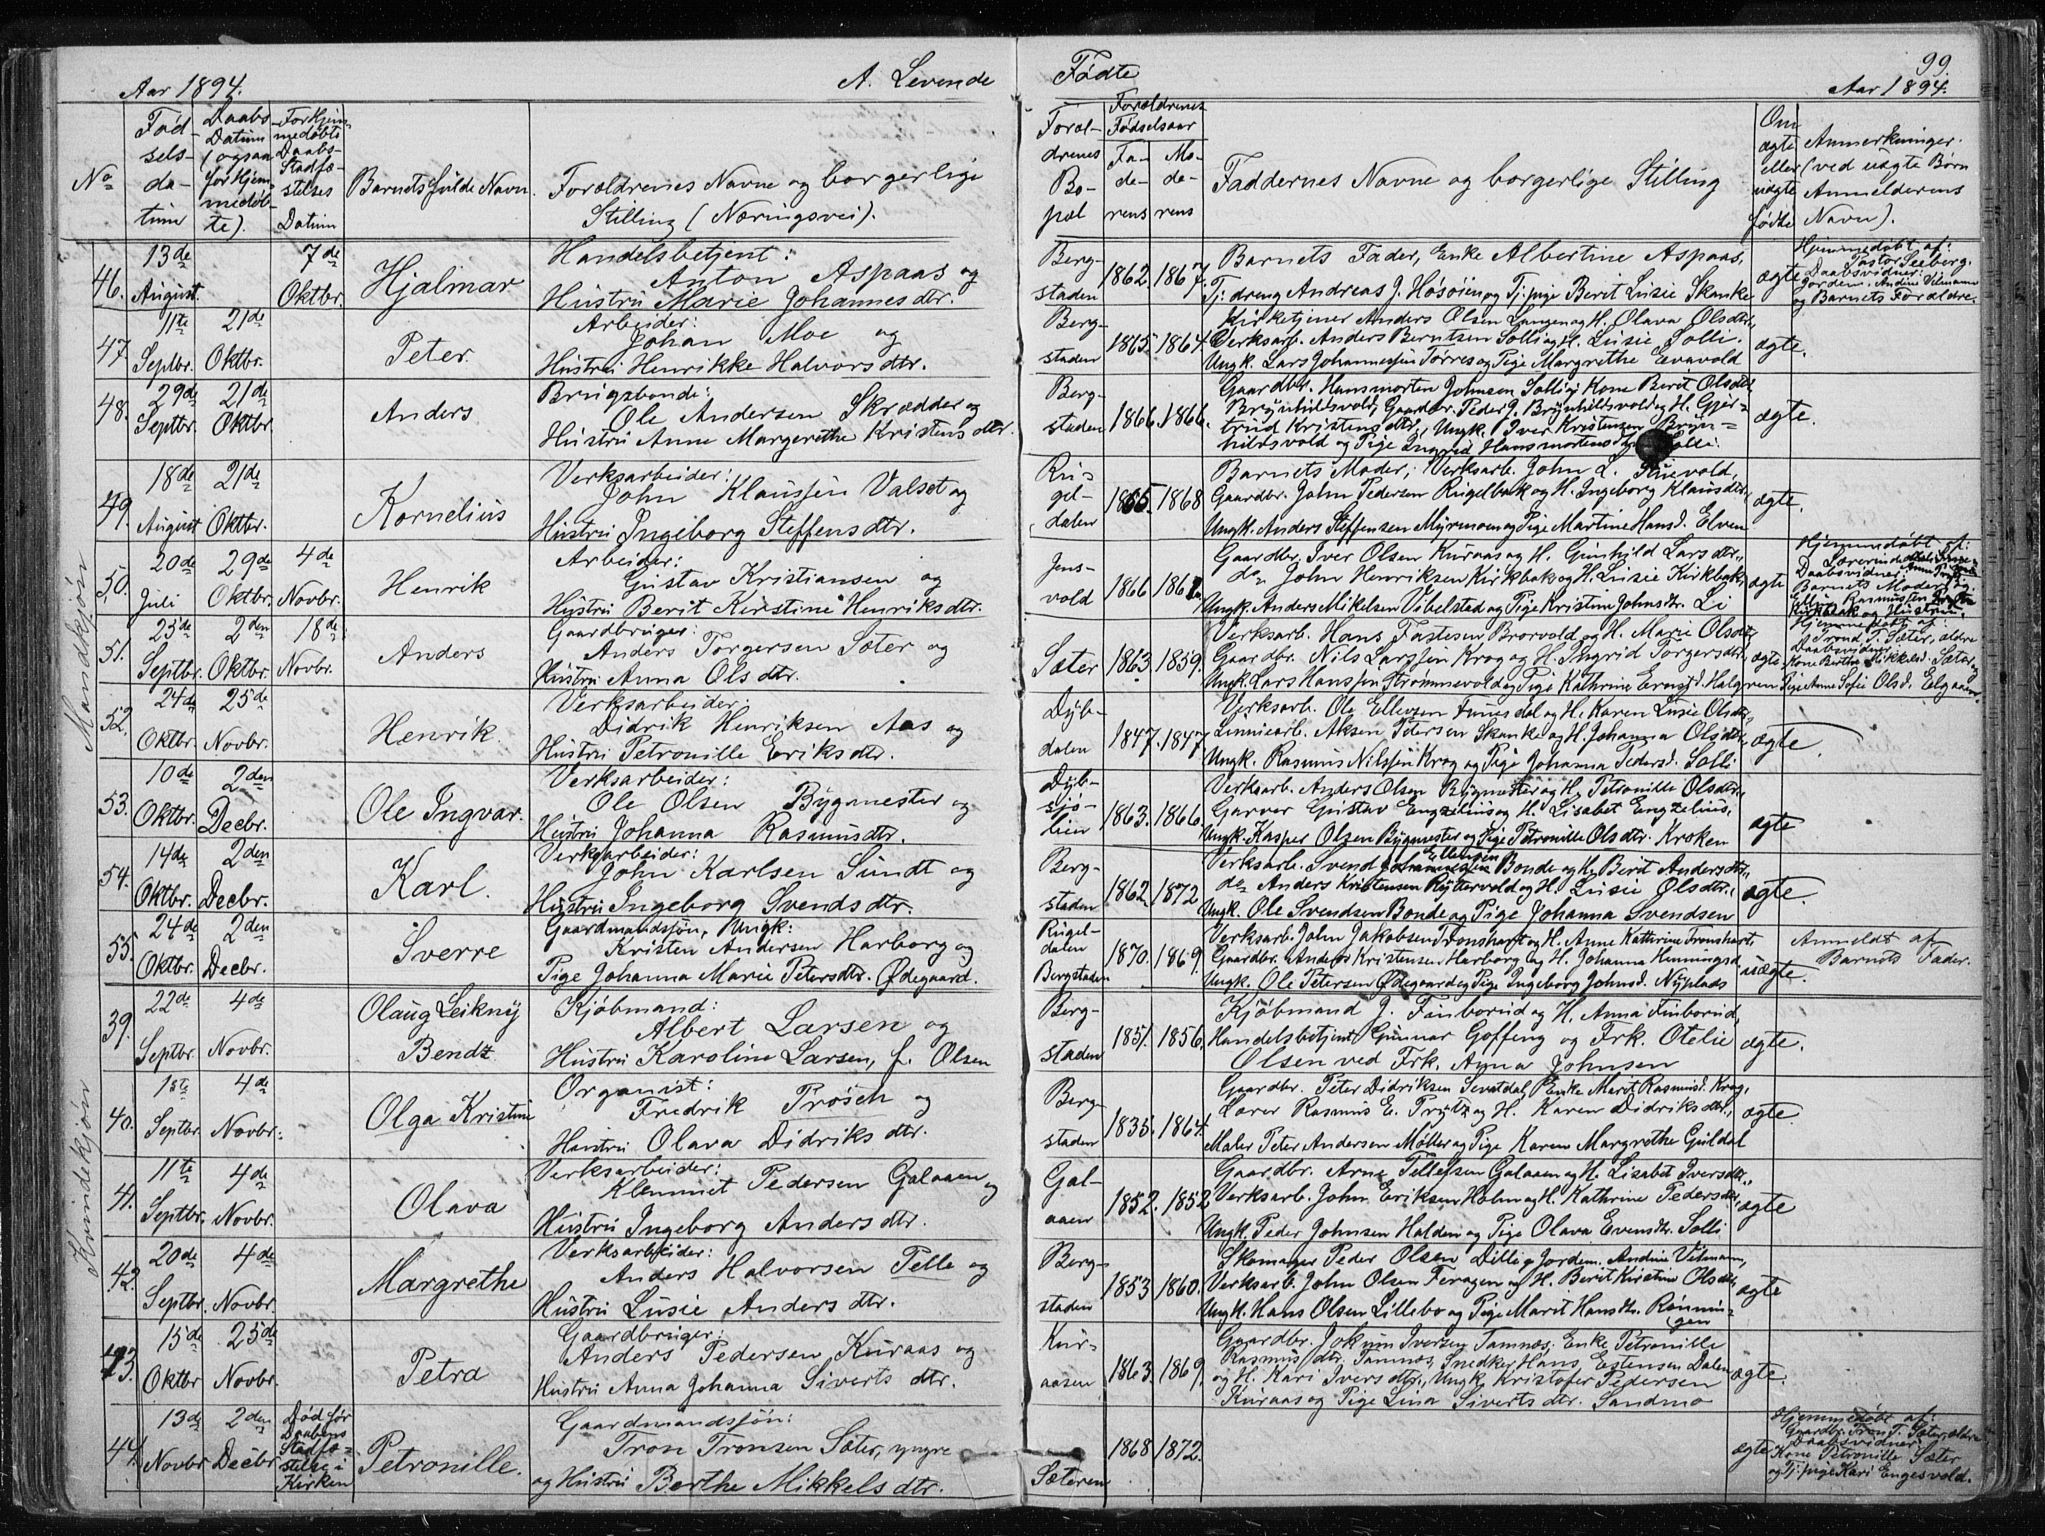 99.
Aar 1894. A. Levende Fødte Aar 1894.
No
Fød-
sels-
da-
tum
Daabs
Datum
(ogsaa
for hjem-
medøb-
te).
For hjem-
medøbte
Daabs-
Stadfæ-
stelses
Datum
Barnets fulde Navn.
Forældrenes Navne og borgerlige
Stilling (Næringsvei).
Foræl-
drenes
Bo-
pæl
Forældrenes
Fødselsaar
Fa-
de-
rens
Mo-
de-
rens
Faddernes Navne og borgerlige Stilling
Om
ægte
eller
uægte
fødte
Anmerkninger.
(ved uægte Børn
Anmelderens
Navn).
Mandkjøn
46. 13de August. 7de Oktbr. Hjalmar
Handelsbetjent:
Anton Aspaas og
Hustru Marie Johannesdtr.
Berg-
staden
1862. 1867.
Barnets Fader, Enke Albertine Aspaas,
Tj. dreng Andreas J. Hosøien og Tj. pige Berit Lusie Skanke
ægte
Hjemmedøbt af:
Pastor Seeberg.
Daabsvidner:
Jordem. Andine Vilmann
og Barnets Forældre.
47. 11te Septbr. 21de Oktbr. Peter.
Arbeider:
Johan Moe og
Hustru Henrikke Halvorsdtr.
Berg-
staden
1865. 1864.
Kirketjener Anders Olsen Langen og H. Olava Olsdtr,
Verksarb. Anders Berntsen Solli og H. Lusie Solli.
Ungk. Lars Johannessen Torres og Pige Margrethe Evavold
ægte.
48. 29de Septbr. 21de Oktbr. Anders
Brugsbonde:
Ole Andersen Skrædder og
Hustru Anne Margrethe Kristensdtr.
Berg-
staden
1866. 1866.
Gaardbr. Hansmorten Johnsen Solli og Kone Berit Olsdtr
Brynhildsvold, Gaardbr. Peder J. Brynhildsvold og H. Gjer-
trud Kristensdtr., Ungk. Iver Kristensen Bryn-
hildsvold og Pige Ingrid Hansmortensdtr. Solli.
ægte.
49. 18de August 21de Oktbr. Kornelius
Verksarbeider:
John Klaussen Valset og
Hustru Ingeborg Steffensdtr.
Ru-
gel-
dalen
1865. 1868
Barnets Moder, Verksarb. John L.
Gaardbr. John Pedersen Rugelbak og H. Ingeborg Klausdtr.,
Ungk. Anders Steffensen Myrmoen og Pige Martine Hansd. Elven
ægte.
50. 20de Juli 29de Oktbr. 4de Novbr. Henrik
Arbeider:
Gustav Kristiansen og
Hustru Berit Kirstine Henriksdtr.
Jens-
vold
1866
Gaardbr. Iver Olsen Kuraas og H. Gunhild Larsdtr.,
do John Henriksen Kirkbak og H. Lusie Kirkbak,
Ungk. Anders Mikelsen Vibelstad og Pige Kristine Johnsdtr. Li
ægte
Hjemmedøbt af:
Daabsvidner:
Barnets Moder,
Kirkbak og Hustru.
51. 23de Septbr. 2den Oktbr. 18de Novbr. Anders
Gaardbruger:
Anders Torgersen Sæter og
Hustru Anna Olsdtr.
Sæter
1863. 1859.
Verksarb. Hans Fastesen Brorvold og H. Marie Olsdtr,
Gaardbr. Nils Larssen Krog og H. Ingrid Torgersdtr.,
Ungk. Lars Hanssen Strømmevold og Pige Kathrine Ernstd. Halgren
ægte
Hjemmedøbt af:
Trond T. Sæter, ældre
Daabsvidner:
Kone Berthe Mikkelsd. Sæter og
Pige Anne Sofie Olsd. Elgaaen.
52. 24de Oktbr. 25de Novbr. Henrik.
Verksarbeider:
Didrik Henriksen Aas og
Hustru Petronille Eriksdtr.
Dyb-
dalen
1847. 1847.
Verksarb. Ole Ellevsen Funesdal og H. Karen Lusie Olsdtr,
Linniearb. Aksen Petersen Skanke og H. Johanna Olsdtr,
Ungk. Rasmus Nilssen Krog og Pige Johanna Pedersd. Solli
ægte.
53. 10de Oktbr. 2den Decbr. Ole Ingvar.
Verksarbeider:
Ole Olsen Bygmester og
Hustru Johanna Rasmusdtr.
Dyb-
sjø-
lien
1863. 1866.
Verksarb. Anders Olsen Bygmester og H. Petronille Olsdtr.,
Garver Gustav Engzelius og H. Lisabet Engzelius,
Ungk. Kasper Olsen Bygmester og Pige Petronille Olsdtr. Kroken
ægte
54. 14de Oktbr. 2den Decbr. Karl.
Verksarbeider:
John Karlsen Sundt og
Hustru Ingeborg Svendsdtr.
Berg-
staden
1862. 1872
Verksarb. Svend Ellevsen Bonde og H. Berit Andersdtr,
do Anders Kristensen Ryttervold og H. Lusie Olsdtr.,
Ungk. Ole Svendsen Bonde og Pige Johanna Svendsen
ægte.
55. 24de Oktbr. 2den Decbr. Sverre
Gaardmandssøn, Ungk:
Kristen Andersen Harborg og
Pige Johanna Marie Petersdtr. Ødegaard.
Rugel-
dalen
Bergstaden
1870. 1869.
Verksarb. John Jakobsen Tronshart og H. Anne Kathrine Tronshart,
Gaardbr. Anders Kristensen Harborg og H. Johanna Hemmingsd
Ungk. Ole Petersen Ødegaard og Pige Ingeborg Johnsd. Nyplads
uægte.
Anmeldt af
Barnets Fader.
Kvindekjøn
39. 22de Septbr. 4de Novbr. Olaug Leikny
Bendz
Kjøbmand:
Albert Larsen og
Hustru Karoline Larsen, f. Olsen
Berg-
staden
1851. 1856.
Kjøbmand J. Finborud og H. Anna Finborud,
Handelsbetjent Gunnar Goffeng og Frk. Otelie
Olsen ved Frk. Anna Johnsen
ægte.
40. 1ste Septbr. 4de Novbr. Olga Kristine
Organist:
Fredrik Prøsch og
Hustru Olava Didriksdtr.
Berg-
staden
1835. 1864.
Gaardbr. Peter Didriksen Sevatdal, Enke Marit Rasmusd. Krog,
Lærer Rasmus E. Prytz og H. Karen Didriksdtr.,
Maler Peter Andersen Møller og Pige Karen Margrethe Guldal
ægte.
41. 11te Septbr. 4de Novbr. Olava
Verksarbeider:
Klemmet Pedersen Galaaen og
Hustru Ingeborg Andersdtr.
Gal-
aaen
1852. 1852
Gaardbr. Arne Tellefsen Galaaen og H. Lisabet Iversdtr.,
Verksarb. John Eriksen Holm og H. Kathrine Pedersdtr,
Ungk. Peder Johnsen Halden og Pige Olava Evensdtr. Solli
ægte
42. 20de Septbr. 4de Novbr. Margrethe
Verksarbeider:
Anders Halvorsen Telle og
Hustru Lusie Andersdtr.
Berg-
staden
1853 1860.
Skomager Peder Olsen Dille, Jordem. Andine Vilmann,
Verksarb. John Olsen Feragen og H. Berit Kristine Olsdtr,
Ungk. Hans Olsen Lillebo og Pige Marit Hansdtr. Rønnin-
gen
ægte
43. 15de Oktbr 25de Novbr. Petra
Gaardbruger:
Anders Pedersen Kuraas og
Hustru Anna Johanna Sivertsdtr.
Kur-
aasen
1863. 1869.
Gaardbr. Jokum Iversen Tamnæs, Enke Petronille
Rasmusdtr. Tamnæs, Snedker Hans Estensen Dalen
og H. Kari Iversdtr., Ungk. Kristofer Pedersen
Kuraas og Pige Lina Sivertsdtr. Sandmo
ægte.
44. 13de Novbr 2den Decbr Død før
Daabens
Stadfæ-
stelse i
Kirken
Petronille.
Gaardmandssøn:
Tron Tronsen Sæter, yngre
og Hustru Berthe Mikkelsdtr.
Sæteren
1868 1872.
ægte
Hjemmedøbt af:
Gaardbr. Tron T. Sæter, ældre
Daabsvidner:
Kone Petronille Sæter
og Tj. pige Kari Engesvold.